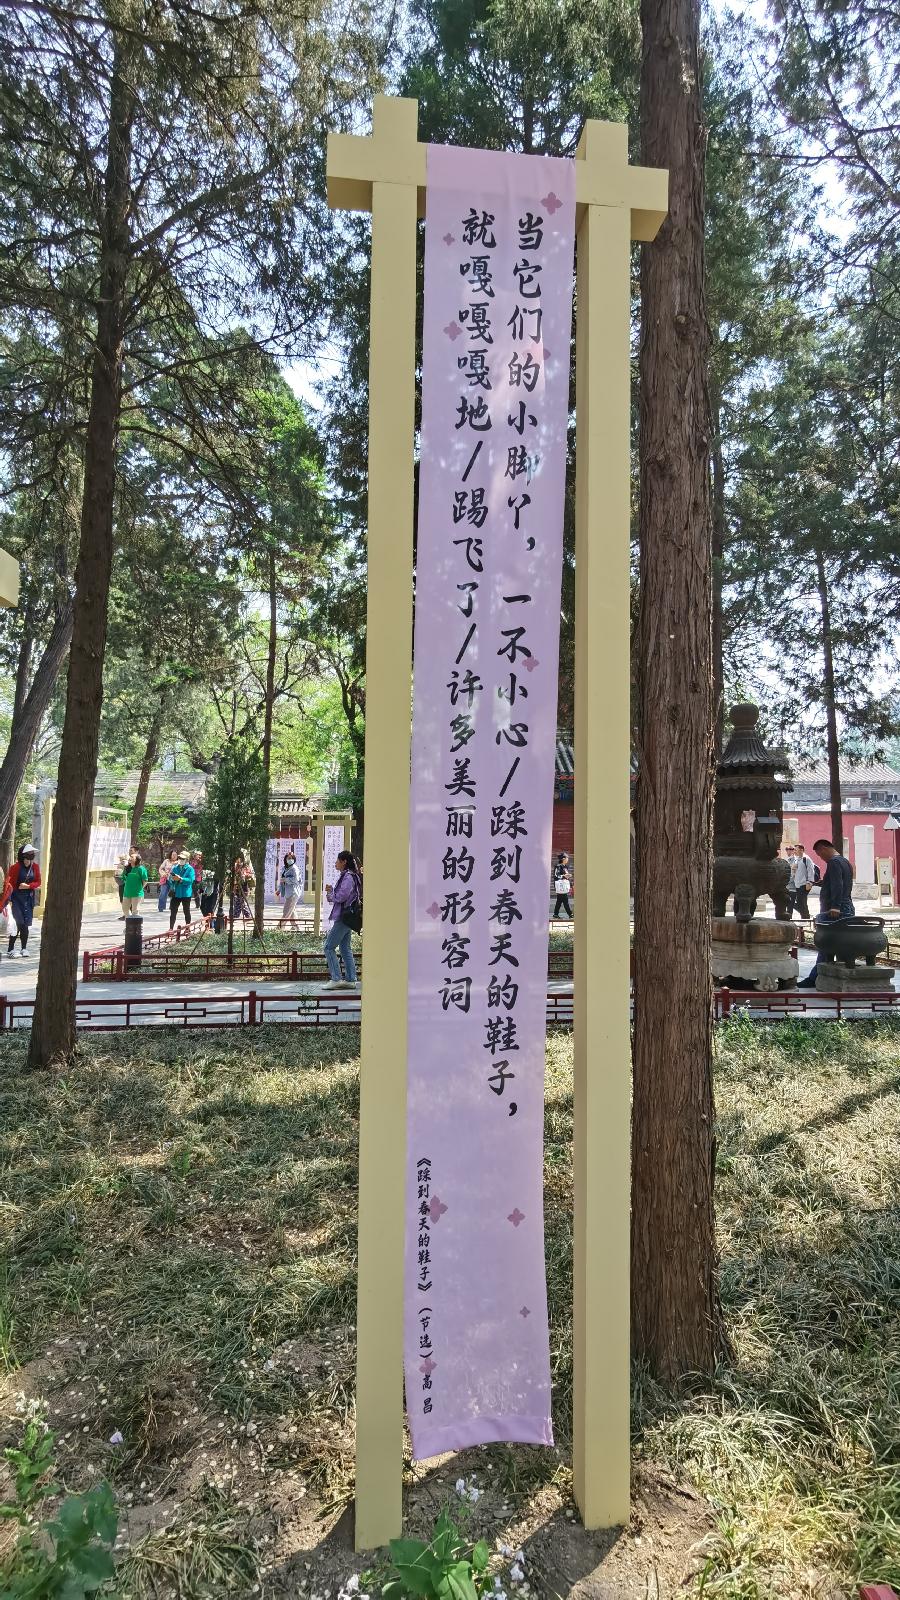 当它们的小脚丫，一不小心/踩到春天的鞋子，
就嘎嘎嘎地/踢飞了/许多美丽的形容词
《踩到春天的鞋子》（节选）高昌